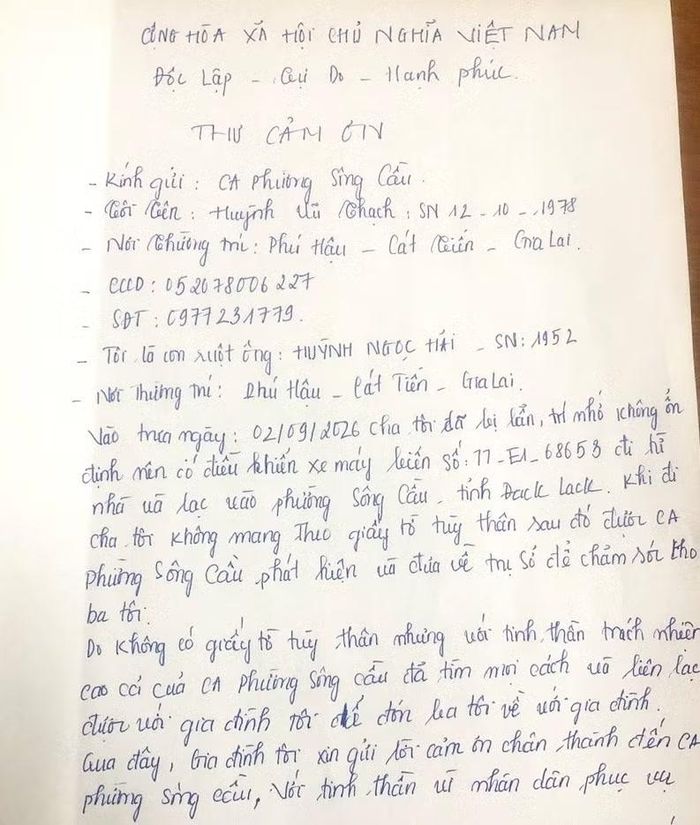 CỘNG HÒA XÃ HỘI CHỦ NGHĨA VIỆT NAM
Độc Lập - Tự Do - Hạnh phúc.
THƯ CẢM ƠN
- Kính gửi: CA phường Sông Cầu.
- Tôi tên: Huỳnh Vũ Thạch: SN 12-10-1978
- Nơi thường trú: Phú Hậu - Cát Tiến - Gia Lai.
- CCCD: 052078006227
- SĐT: 0977231779.
- Tôi là con ruột ông: HUỲNH NGỌC HẢI - SN: 1952
- Nơi thường trú: Phú Hậu - Cát Tiến - Gia Lai.
Vào trưa ngày: 02/09/2026 cha tôi đã bị lẩn, trí nhớ không ổn
định nên có điều khiển xe máy biển số: 77-E1-68653 đi từ
nhà và lạc vào phường Sông Cầu - tỉnh Đack Lack. Khi đi
cha tôi không mang theo giấy tờ tùy thân sau đó được CA
phường Sông Cầu phát hiện và đưa về trụ sở để chăm sóc cho
ba tôi.
Do không có giấy tờ tùy thân nhưng với tinh thần trách nhiệm
cao cả của CA phường Sông Cầu đã tìm mọi cách và liên lạc
được với gia đình tôi để đón ba tôi về với gia đình.
Qua đây, Gia đình tôi xin gửi lời cảm ơn chân thành đến CA
phường Sông Cầu, Với tinh thần vì nhân dân phục vụ